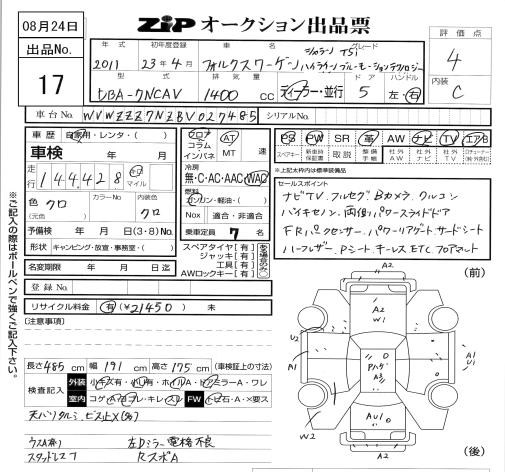 08月24日
ZiP オークション出品票
評価点
4
内装
C
出品No.
17
年式 初年度登録 車名 グレード
2011 23年4月 フォルクスワーゲン シャラン TSI
ハイライン ブルーモーションテクノロジー
型式 排気量 ドア ハンドル
DBA-7NCAV 1400cc ディーラー・並行 5 左・右
車台No. WVWZZZ7NZBV027485 シリアルNo.
車歴 自家用・レンタ・( )
車検 年 月
走行 144428 キロ マイル
色 クロ (元色) カラーNo. 内装色 クロ
予備検 年 月 日(3・8)No.
形状 キャンピング・放宣・事務室・( )
名変期限 年 月 日迄
登録No.
リサイクル料金 有(¥21450) 未
フロア コラム インパネ
AT MT 速
冷房
無・C・AC・AAC・WAC
燃料
ガソリン・軽油・( )
Nox 適合・非適合
乗車定員 7 名
スペアタイヤ【有】
ジャッキ【有】
工具【有】
AWロックキー【有】
ある場合のみ○
PS PW SR 革 AW ナビ TV エアB
スペアキー 新車時保証書 取説 整備手帳 社外AW 社外ナビ 社外TV
※上記太枠内は標準装備品
セールスポイント
ナビTV フルセグ Bカメラ クルコン
ハイキセノン 両側パワースライドドア
FRパークセンサー パワーリアゲート サードシート
ハーフレザー Pシート キーレス ETC フロアマット
※ご記入の際はボールペンで強くご記入下さい。
【注意事項】
長さ 485cm 幅 191cm 高さ 175cm (車検証上の寸法)
検査記入 外装 小キズ有・小凹有・ホイルA・ドアミラーA・ワレ
室内 コゲ・A・ヨゴレ・キレ・スレ FW トビ石・A・×要ス
ウスA有り 左Dミラー電格不良
スタッドレス RスポA
(前)
A2
A2
W1
U2
A1
A2
U1
W2
AU1
A2
(後)